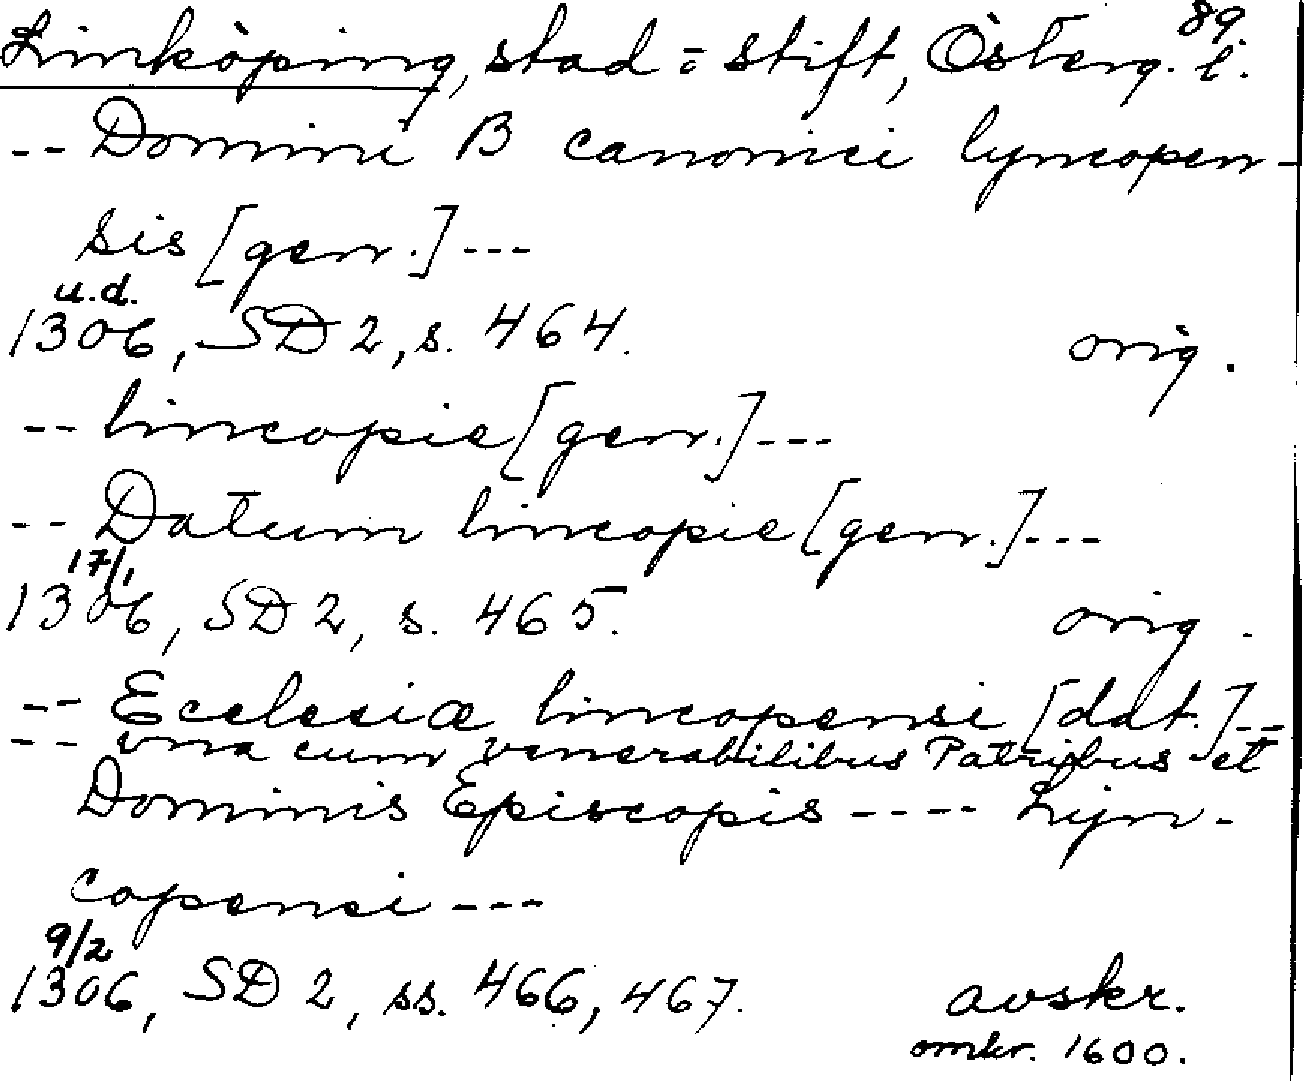 89.
Linköping, stad = stift, Österg. l.
-- Domini B canonici lyncopen-
sis [gen.] ---
u.d.
1306, SD 2, s. 464. orig.
-- lincopie [gen.] ---
-- Datum lincopie [gen.] ---
17/1
1306, SD 2, s. 465. orig.
-- Ecclesiæ lincopensi [dat.] --
-- vna cum venerabilibus Patribus et
Dominis Episcopis ---- Lyn-
copensi ---
9/2
1306, SD 2, ss. 466, 467. avskr.
omkr. 1600.